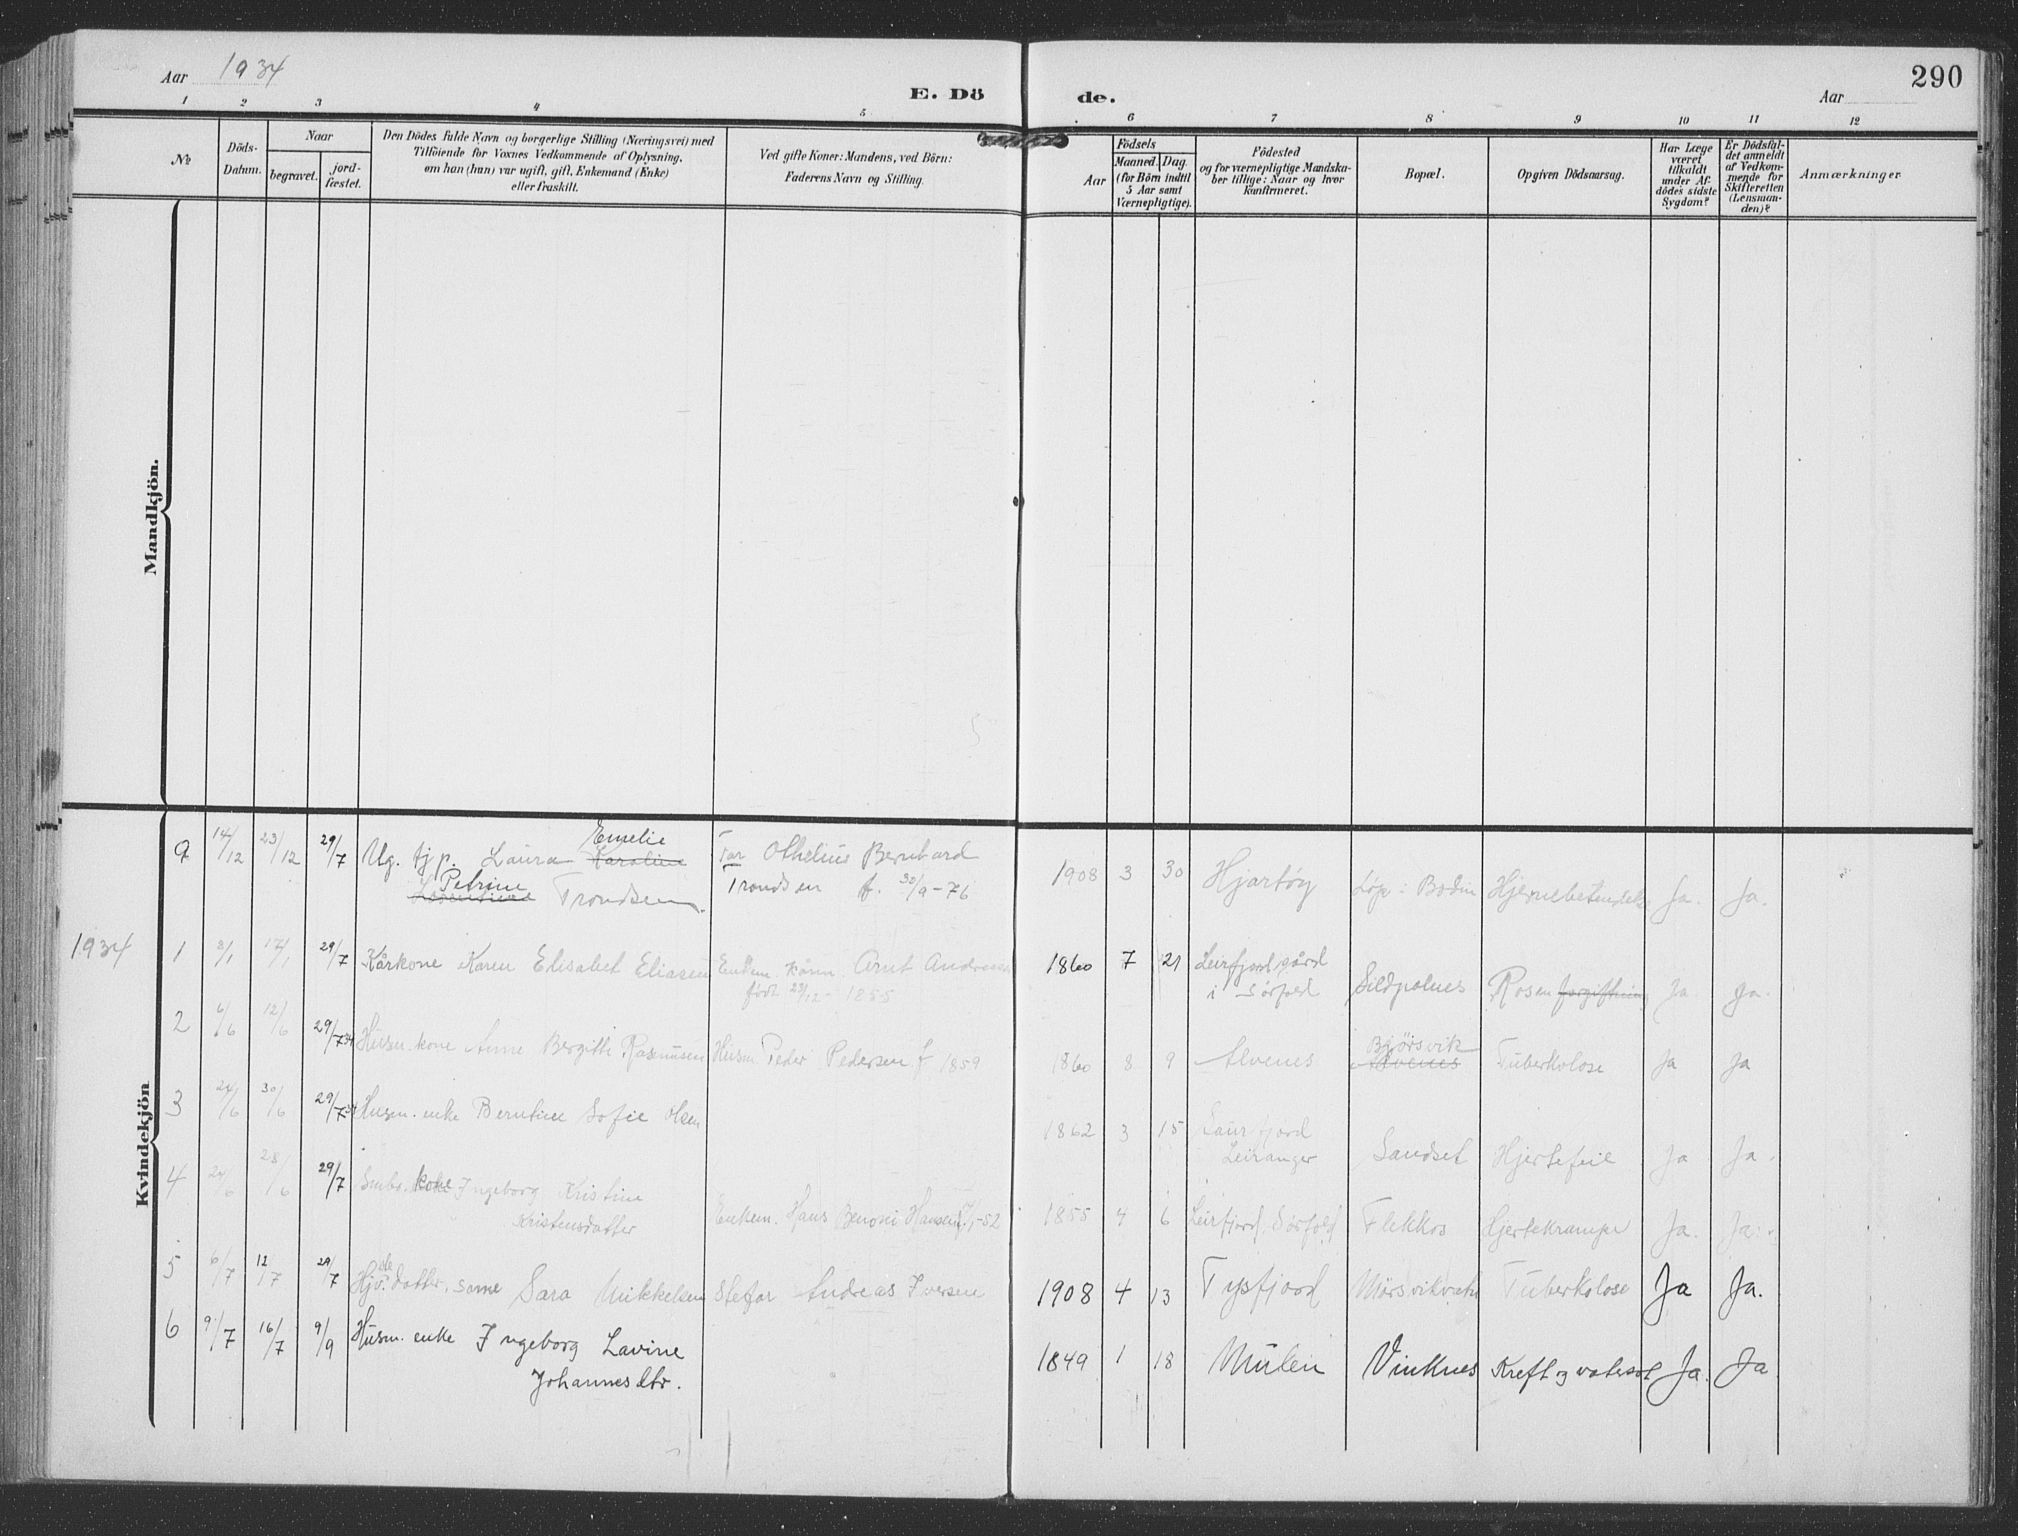 Aar 1934
E. Dö
de.
Aar
290
1 2 3 4 5 6 7 8 9 10 11 12
No
Döds-
Datum.
Naar
begravet.
jord-
fæstet.
Den Dödes fulde Navn og borgerlige Stilling (Næringsvei) med
Tilföiende for Voxnes Vedkommende af Oplysning,
om han (hun) var ugift, gift, Enkemand (Enke)
eller fraskilt.
Ved gifte Koner: Mandens, ved Börn:
Faderens Navn og Stilling.
Födsels
Aar
Maaned. Dag.
(for Börn indtil
5 Aar samt
Værnepligtige).
Födested
og for værnepligtige Mandska-
ber tillige: Naar og hvor
konfirmeret.
Bopæl.
Opgiven Dödsaarsag.
Har Læge
været
tilkaldt
under Af-
dödes sidste
Sygdom?
Er Dödsfal-
det anmeldt
af Vedkom-
mende for
Skifteretten
(Lensman-
den)?
Anmærkninger
Mandkjön.
Kvindekjön
Emelie
9 14/12 23/12 29/7 Ug. tjp. Laura Karoline Far Othelius Bernhard 1908 3 30 Hjartøy Løp i Bodin Ja. Ja.
Petrine
Trondsen Trondsen f. 30/9-76
1934 1 8/1 17/1 29/7 Kårkone Karen Elisabet Eliasen Enkem. kårm. Arnt 1860 7 21 Leirfjordgård Sildpolnes Rosen forgiftning Ja Ja.
født 23/12 - 1855 i Sørfold
2 6/6 12/6 29/7 34 Husm. kone Anne Bergitte Rasmusen Husm Peder Pedersen f 1859 1860 8 9 Alvenes Bjørsvik Alvenes Tuberkolose Ja Ja
3 24/6 30/6 29/7 34 Husm. enke Berntine Sofie Olsen 1862 3 15 Saurfjord Sandset Hjertefeil Ja Ja.
Leiranger
4 28/6 29/7 Smbr. kone Ingeborg Kristine
Kristensdatter Enkem. Hans Benoni Hansen 1855 4 6 Leirfjord, Sørfold Flekkos Hjertekrampe Ja. Ja.
5 6/7 12/7 29/7 datter, same Sara Mikkelsen Stefar Andreas Iversen 1908 4 13 Tysfjord Mørsvikvatn Tuberkolose Ja Ja.
6 9/7 16/7 9/9 Husm. enke Ingeborg Lavine 1849 1 18 Mulen Vinknes Kreft og vatersot Ja. Ja
Johannesdtr.